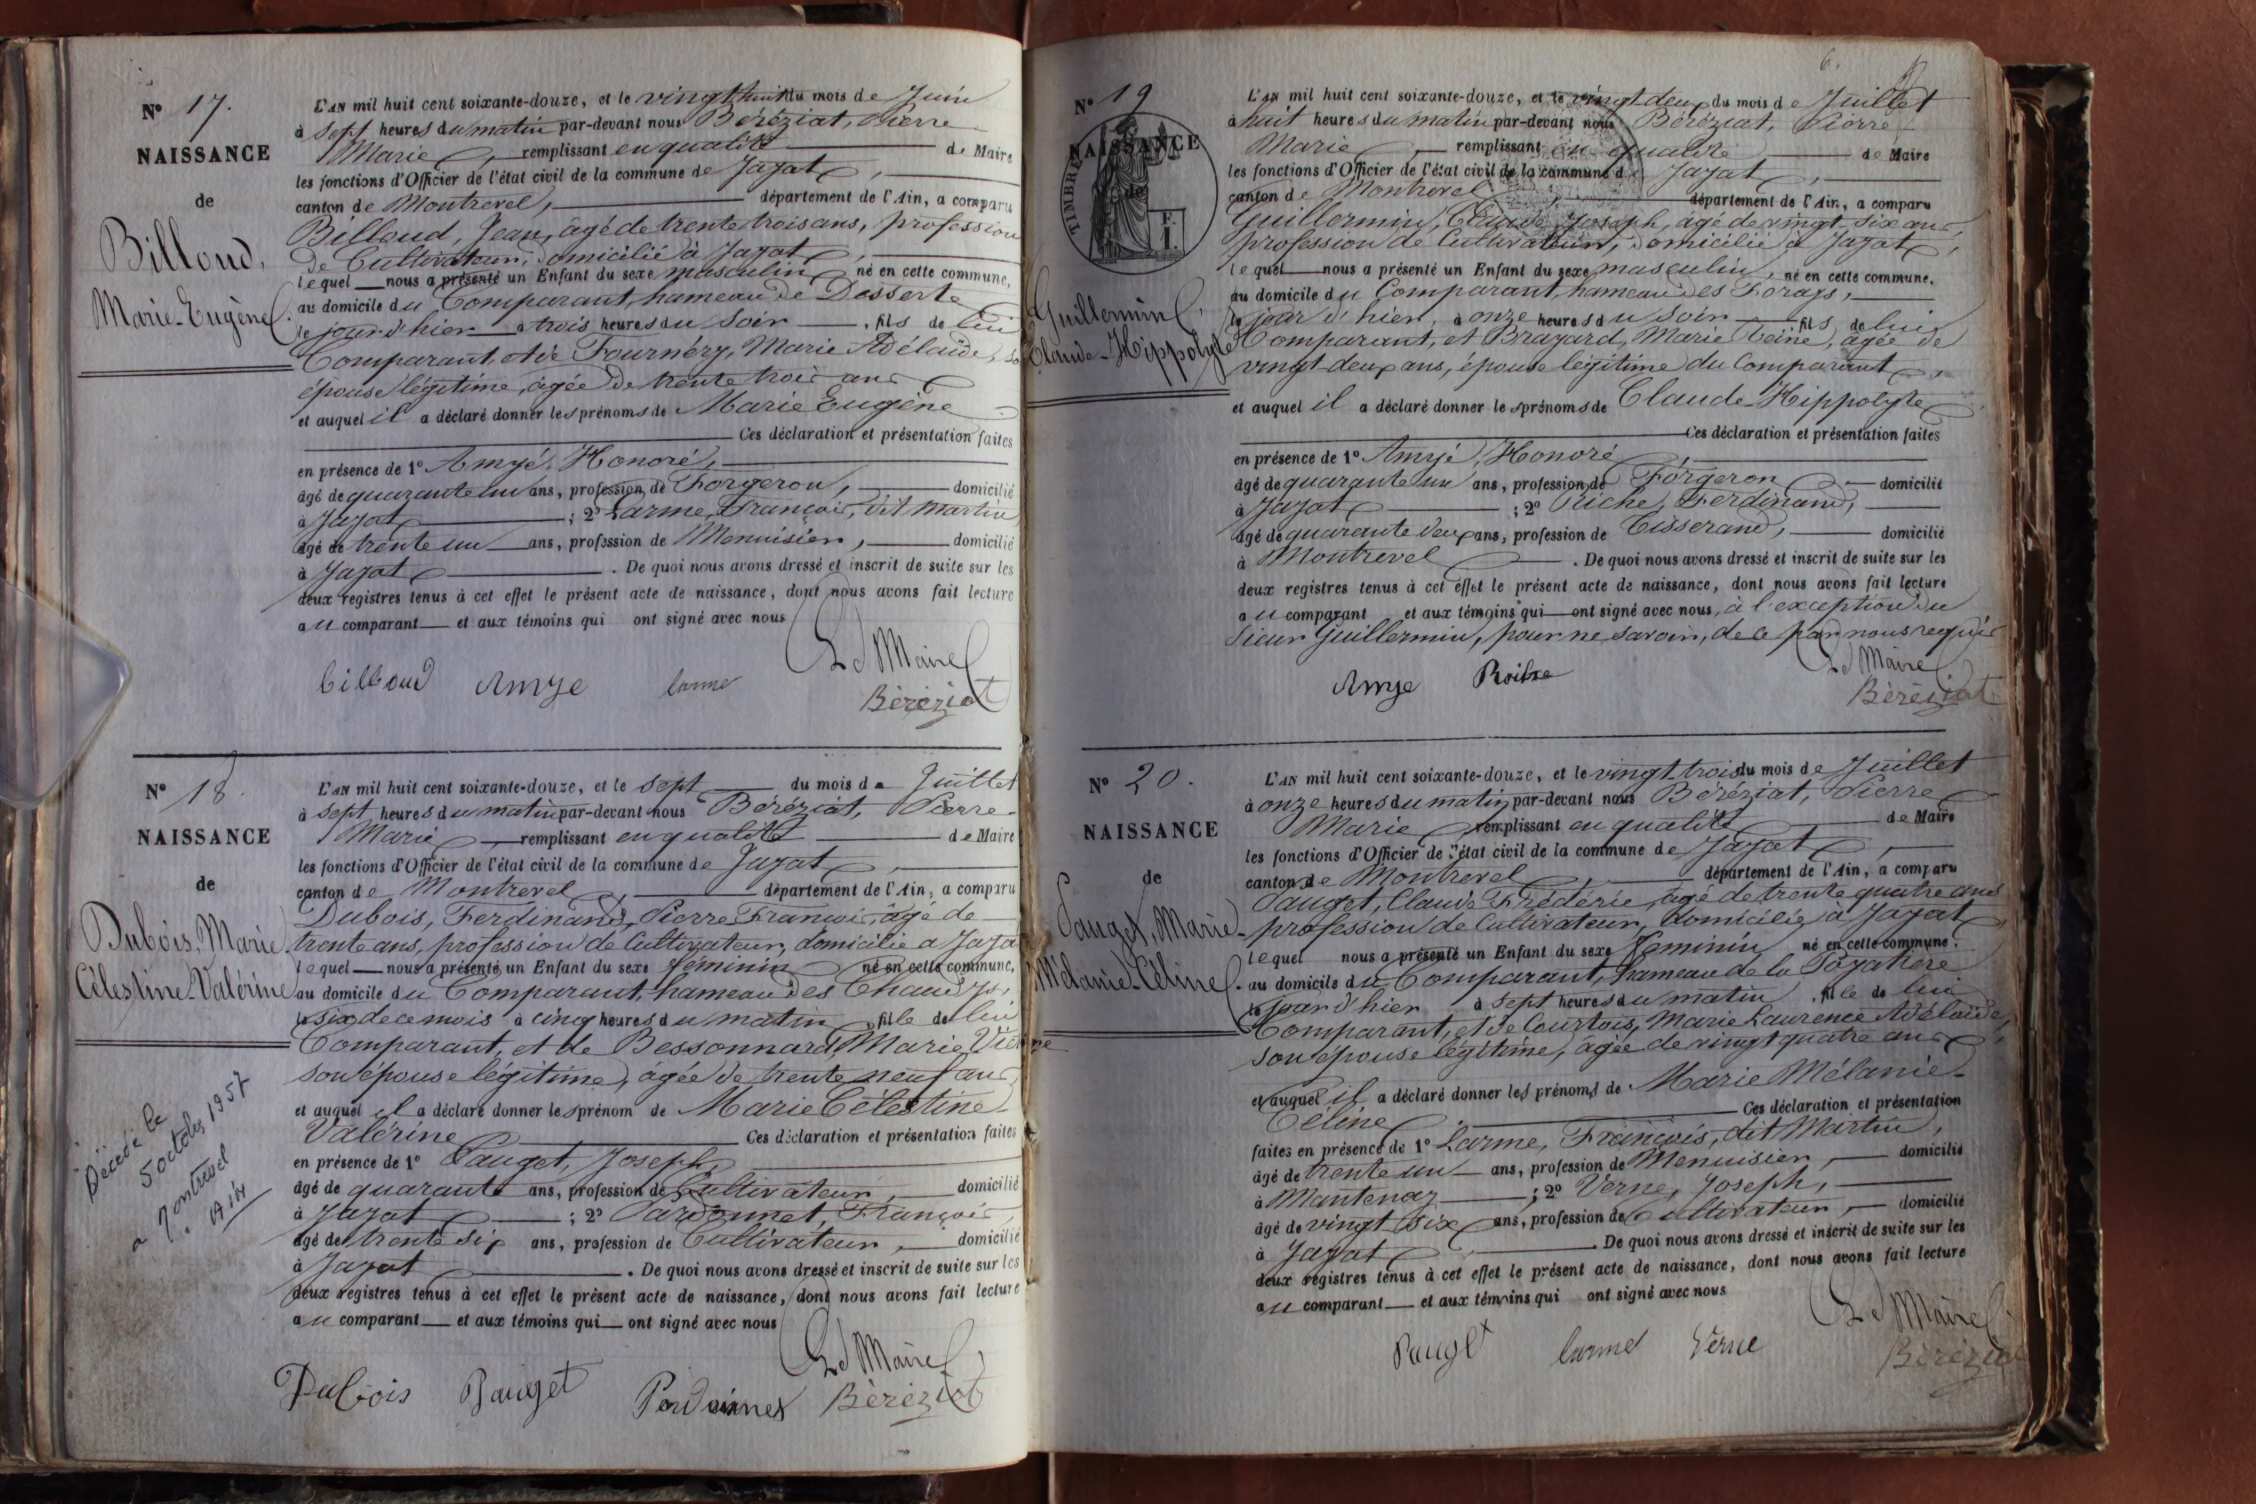 N° 17.
NAISSANCE
de
Billoud,
Marie-Eugène.
L'AN mil huit cent soixante-douze, et le vingt huit du mois de Juin
à sept heures du matin par-devant nous Béréziat, Pierre
Marie, remplissant en qualité de Maire
les fonctions d'Officier de l'état civil de la commune de Jayat,
canton de Montrevel, département de l'Ain, a comparu
Billoud, Jean, âgé de trente trois ans, profession
de Cultivateur, domicilié à Jayat,
lequel nous a présenté un Enfant du sexe masculin, né en cette commune,
au domicile du Comparant, hameau de Desserte
le jour d'hier à trois heures du soir, fils de lui
Comparant et de Fournéry, Marie Adélaïde, sa
épouse légitime, âgée de trente trois ans
et auquel il a déclaré donner les prénoms de Marie Eugène
Ces déclaration et présentation faites
en présence de 1° Amyé, Honoré,
âgé de quarante un ans, profession de Forgeron, domicilié
à Jayat ; 2° Larme, François, dit Martin
âgé de trente un ans, profession de Menuisier, domicilié
à Jayat. De quoi nous avons dressé et inscrit de suite sur les
deux registres tenus à cet effet le présent acte de naissance, dont nous avons fait lecture
au comparant et aux témoins qui ont signé avec nous
Le Maire
billoud Amye larme Béréziat
N° 18.
NAISSANCE
de
Dubois, Marie
Célestine-Valérine
Décédée le
5 octobre 1957
a Montrevel
Ain
L'AN mil huit cent soixante-douze, et le sept du mois de Juillet
à sept heures du matin par-devant nous Béréziat, Pierre
Marie, remplissant en qualité de Maire
les fonctions d'Officier de l'état civil de la commune de Jayat,
canton de Montrevel, département de l'Ain, a comparu
Dubois, Ferdinand, Pierre François, âgé de
trente ans, profession de Cultivateur, domicilié à Jayat
lequel nous a présenté un Enfant du sexe féminin né en cette commune,
au domicile du Comparant, hameau des
le six de ce mois à cinq heures du matin, fille de lui
Comparant, et de Bessonnard, Marie
son épouse légitime, âgée de trente neuf ans
et auquel il a déclaré donner les prénom de Marie Célestine
Valérine Ces déclaration et présentation faites
en présence de 1° Pauget, Joseph,
âgé de quarante ans, profession de Cultivateur, domicilié
à Jayat ; 2° Pardonnet, François,
âgé de trente six ans, profession de Cultivateur, domicilié
à Jayat. De quoi nous avons dressé et inscrit de suite sur les
deux registres tenus à cet effet le présent acte de naissance, dont nous avons fait lecture
au comparant et aux témoins qui ont signé avec nous
Le Maire
Dubois Pauget Pardonnet Béréziat
6.
N° 19
NAISSANCE
de
TIMBRE
F.
1.
Guillermin,
Claude-Hippolyte
L'AN mil huit cent soixante-douze, et le vingt deux du mois de Juillet
à huit heures du matin par-devant nous Béréziat, Pierre
Marie, remplissant en qualité de Maire
les fonctions d'Officier de l'état civil de la commune de Jayat,
canton de Montrevel, département de l'Ain, a comparu
Guillermin, Claude Joseph, âgé de vingt six ans,
profession de Cultivateur, domicilié à Jayat,
lequel nous a présenté un Enfant du sexe masculin, né en cette commune,
au domicile du Comparant, hameau des Forays,
le jour d'hier, à onze heures du soir fils de lui
Comparant, et Brayard, Marie Reine, âgée de
vingt deux ans, épouse légitime du Comparant
et auquel il a déclaré donner les prénoms de Claude-Hippolyte
Ces déclaration et présentation faites
en présence de 1° Amyé, Honoré,
âgé de quarante un ans, profession de Forgeron domicilié
à Jayat ; 2° Riche, Ferdinand,
âgé de quarante deux ans, profession de Tisserand, domicilié
à Montrevel. De quoi nous avons dressé et inscrit de suite sur les
deux registres tenus à cet effet le présent acte de naissance, dont nous avons fait lecture
au comparant et aux témoins qui ont signé avec nous, à l'exception du
sieur Guillermin, pour ne savoir, de ce par nous requis
Le Maire
Amye Béréziat
N° 20.
NAISSANCE
de
Pauget, Marie-
Mélanie-Céline.
L'AN mil huit cent soixante-douze, et le vingt trois du mois de Juillet
à onze heures du matin par-devant nous Béréziat, Pierre
Marie, remplissant en qualité de Maire
les fonctions d'Officier de l'état civil de la commune de Jayat,
canton de Montrevel, département de l'Ain, a comparu
Pauget, Claude Frédéric, âgé de trente quatre ans
profession de Cultivateur, domicilié à Jayat
lequel nous a présenté un Enfant du sexe féminin né en cette commune,
au domicile du Comparant, hameau de la
le jour d'hier à sept heures du matin, fille de lui
Comparant, et de Courtois, Marie Laurence Adélaïde,
son épouse légitime, âgée de vingt quatre ans
et auquel il a déclaré donner les prénoms de Marie Mélanie-
Céline. Ces déclaration et présentation
faites en présence de 1° Larme, François, dit Martin,
âgé de trente un ans, profession de Menuisier, domicilié
à Mantenay ; 2° Verne, Joseph,
âgé de vingt six ans, profession de Cultivateur, domicilié
à Jayat. De quoi nous avons dressé et inscrit de suite sur les
deux registres tenus à cet effet le présent acte de naissance, dont nous avons fait lecture
au comparant et aux témoins qui ont signé avec nous
Le Maire
Pauget larme Verne Béréziat